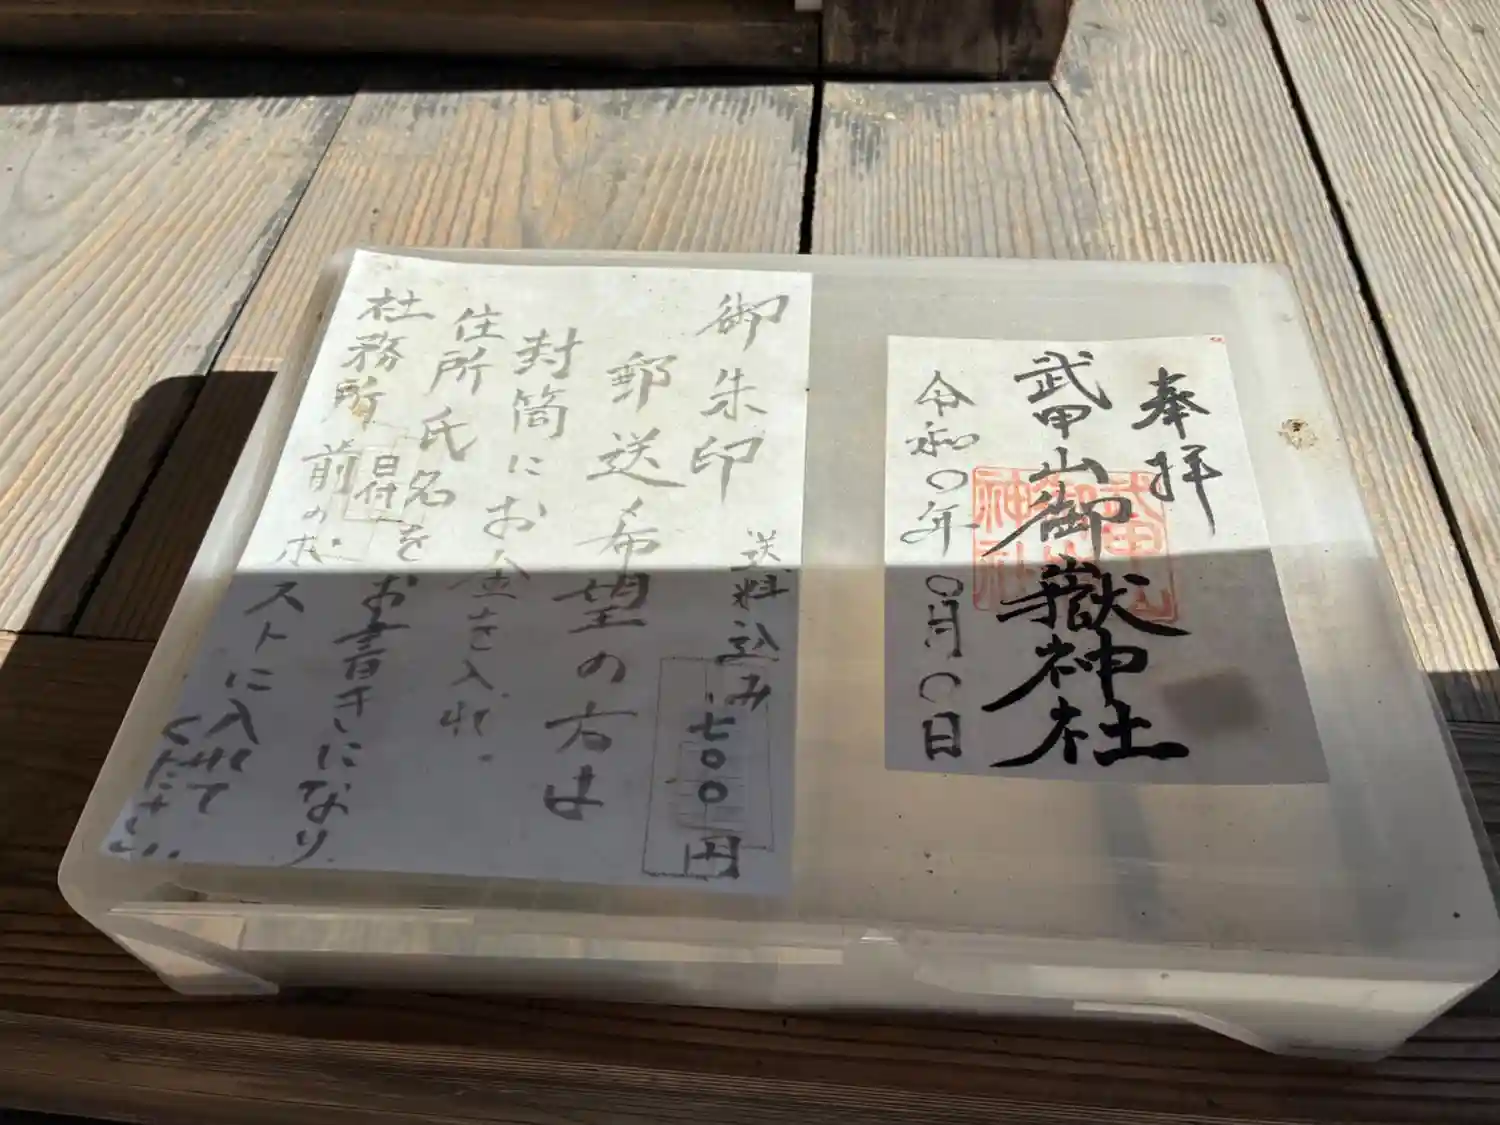 奉拝
武甲山御嶽神社
令和〇年〇月〇日
御朱印
送料込み
七〇〇円
郵送希望の方は
封筒にお金を入れ、
住所氏名をお書きになり
日付
社務所前のポストに入れて
ください